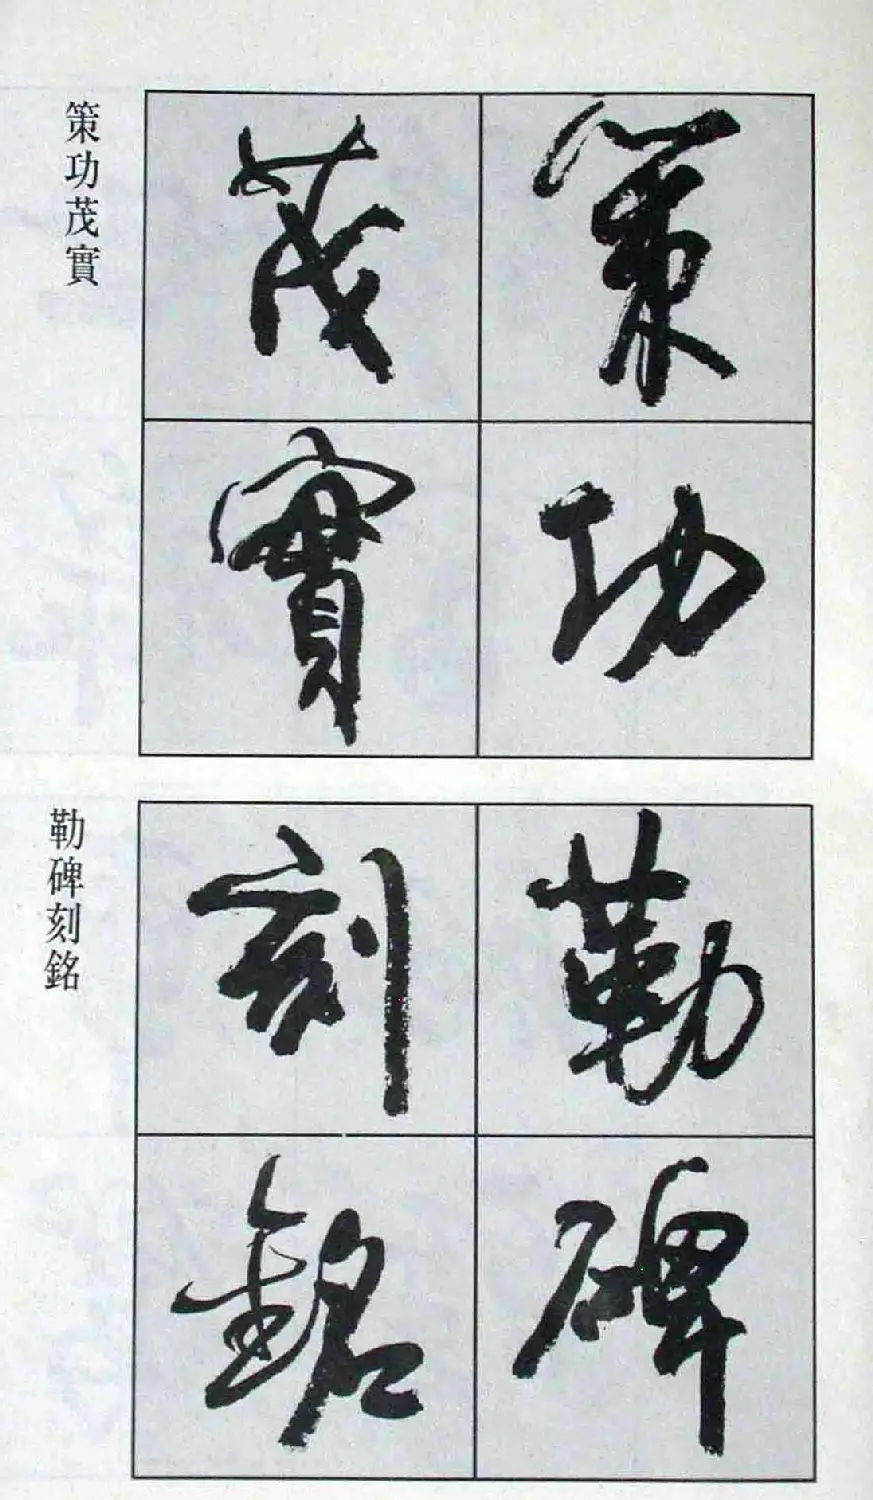 策功
茂實
策功茂實
勒碑
刻銘
勒碑刻銘